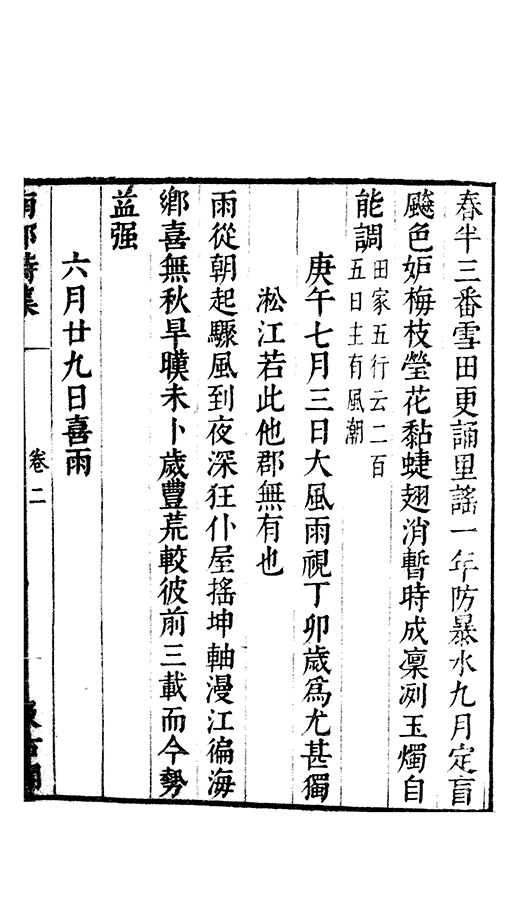 春半三番雪田更誦里謠一年防暴水九月定盲
飈色妒梅枝瑩花黏蜨翅消暫時成凛冽玉燭自
能調田家五行云二百
五日主有風潮
庚午七月三日大風雨視丁卯歲爲尤甚獨
淞江若此他郡無有也
雨從朝起驟風到夜深狂仆屋搖坤軸漫江徧海
鄉喜無秋旱暵未卜歲豐荒較彼前三載而今勢
益强
六月廿九日喜雨
卷二